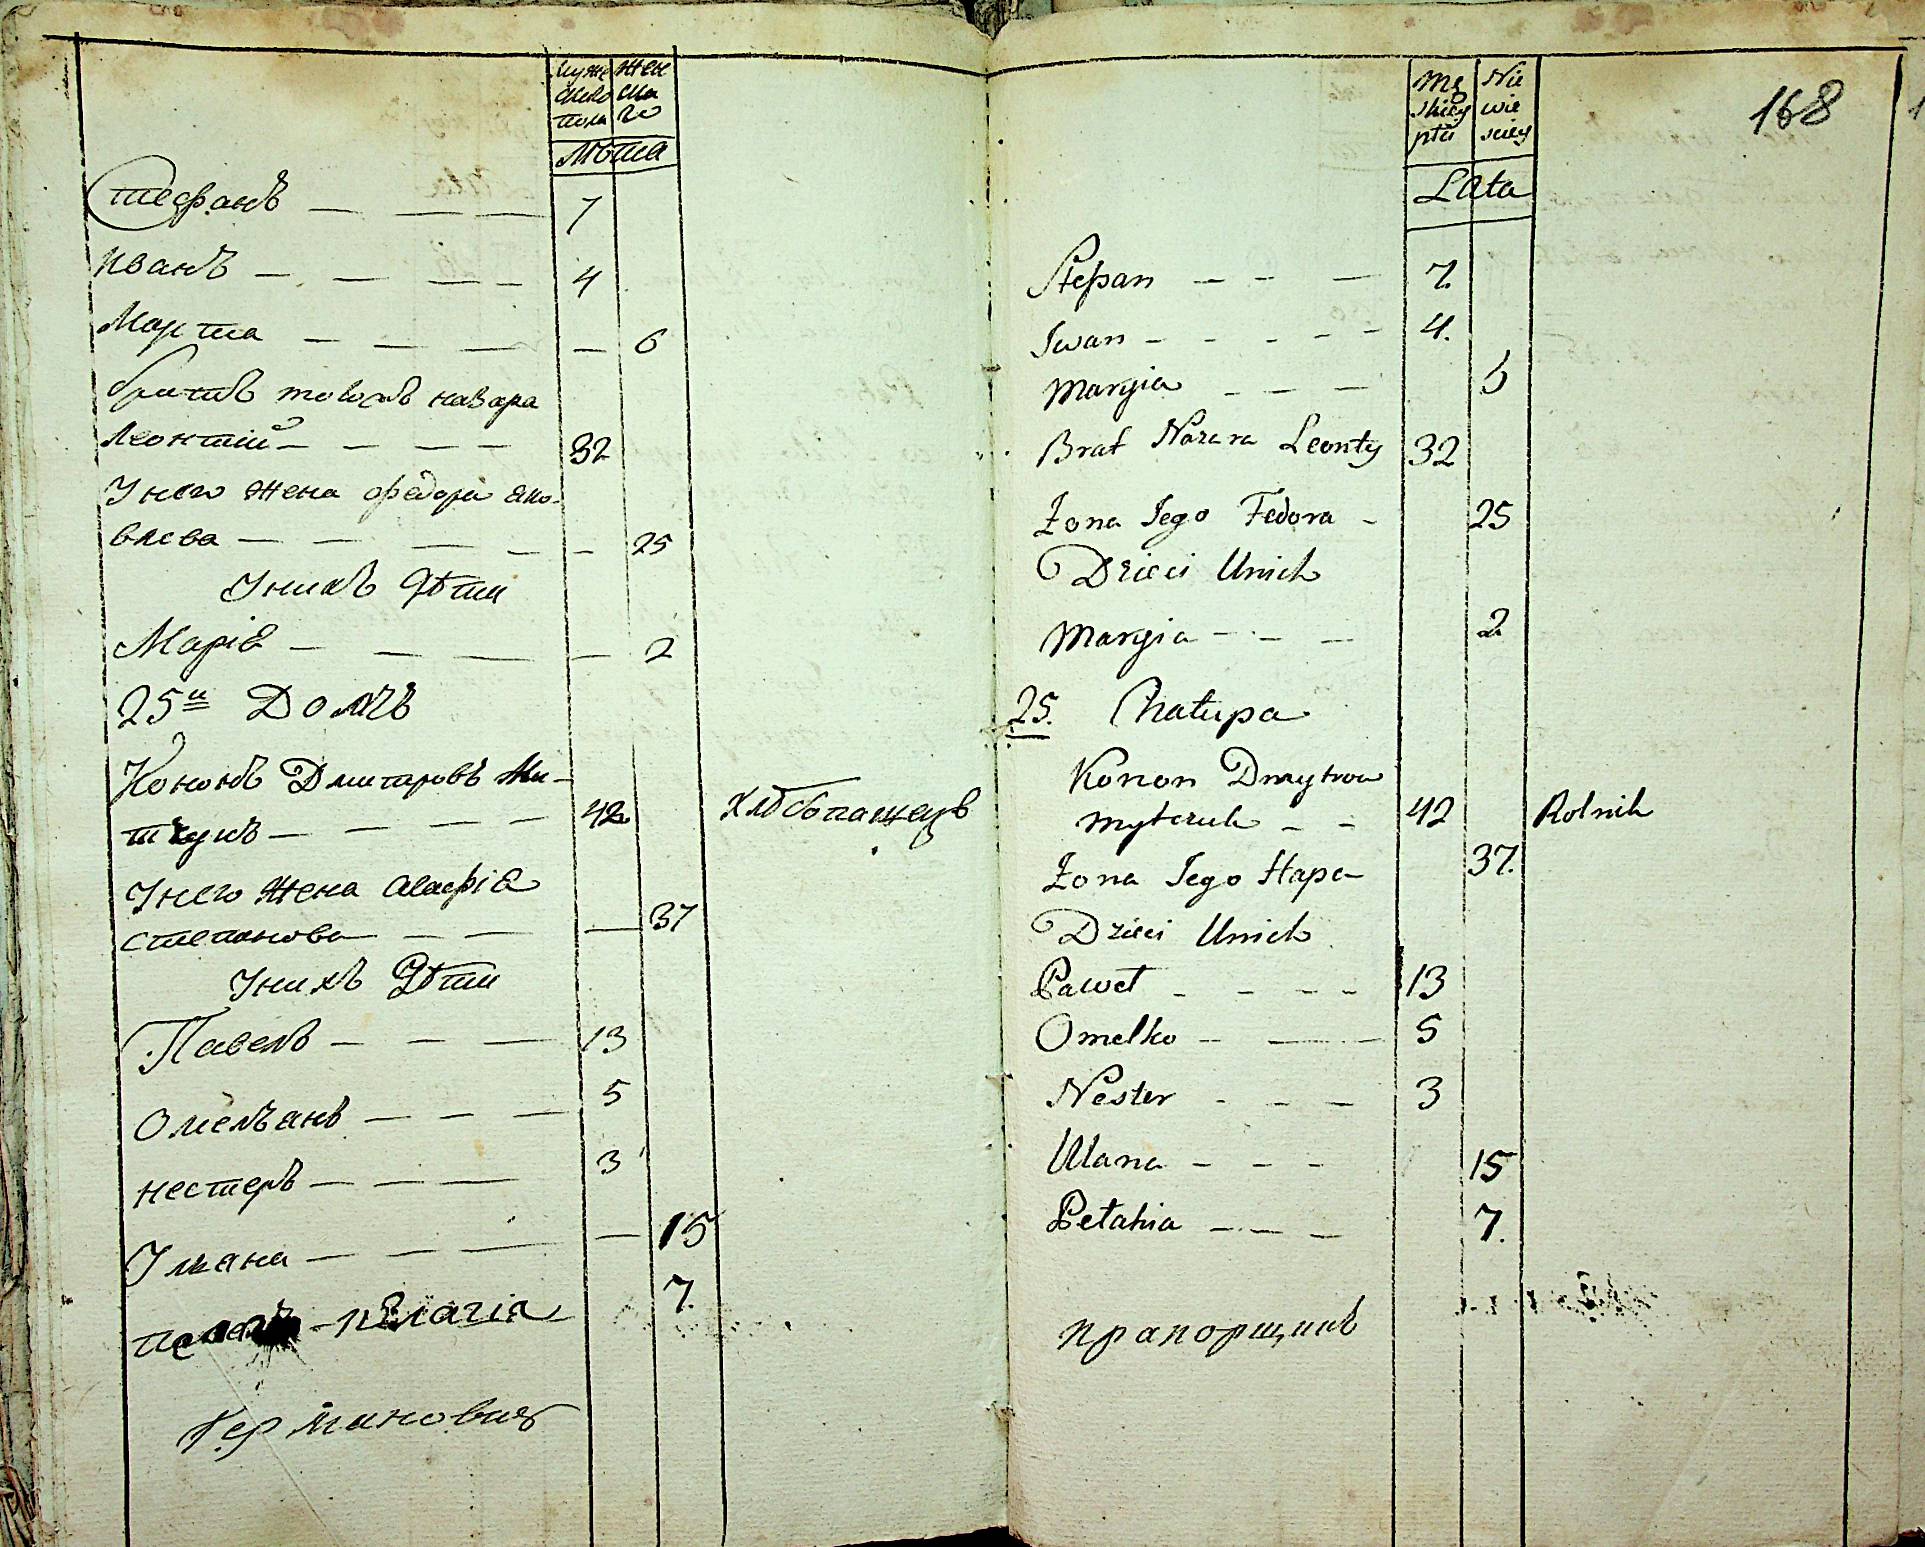 муже жен
ского ска
пола го
Лѣта
Стефанъ — — — — 7
Иванъ — — — — 4
Марта — — — — — 6
братъ тово жъ назара
леонтій — — — — 32
У него жена федора яко-
влева — — — — — 25
У нихъ Дѣти
Маріа — — — — — 2
25й Домъ
Кононъ Дмитровъ Ми-
тчукъ — — — — 42 хлѣбопашецъ
У него жена Агафіа
степанова — — — 37
У нихъ Дѣти
Павелъ — — — 13
Омелъянъ — — — 5
нестеръ — — — 3
Ульяна — — — — 15
пелагіа 7.
Германовичъ
168
Mę Nie
skiey wie
płci sciey
Lata
Stepan — — — 7.
Iwan — — — — — 4.
Maryia — — — 6
Brat Nazara Leonty 32
Żona Iego Fedora — 25
Dzieci Unich
Maryia — — — 2
25. Chałupa
Konon Dmytrow
Mytczuk — — 42 Rolnik
Żona Iego Hapa 37.
Dzieci Unich
Paweł — — — — 13
Omelko — — — 5
Nester — — — 3
Ulana — — — 15
Pełahia — — — 7.
прапорщикъ